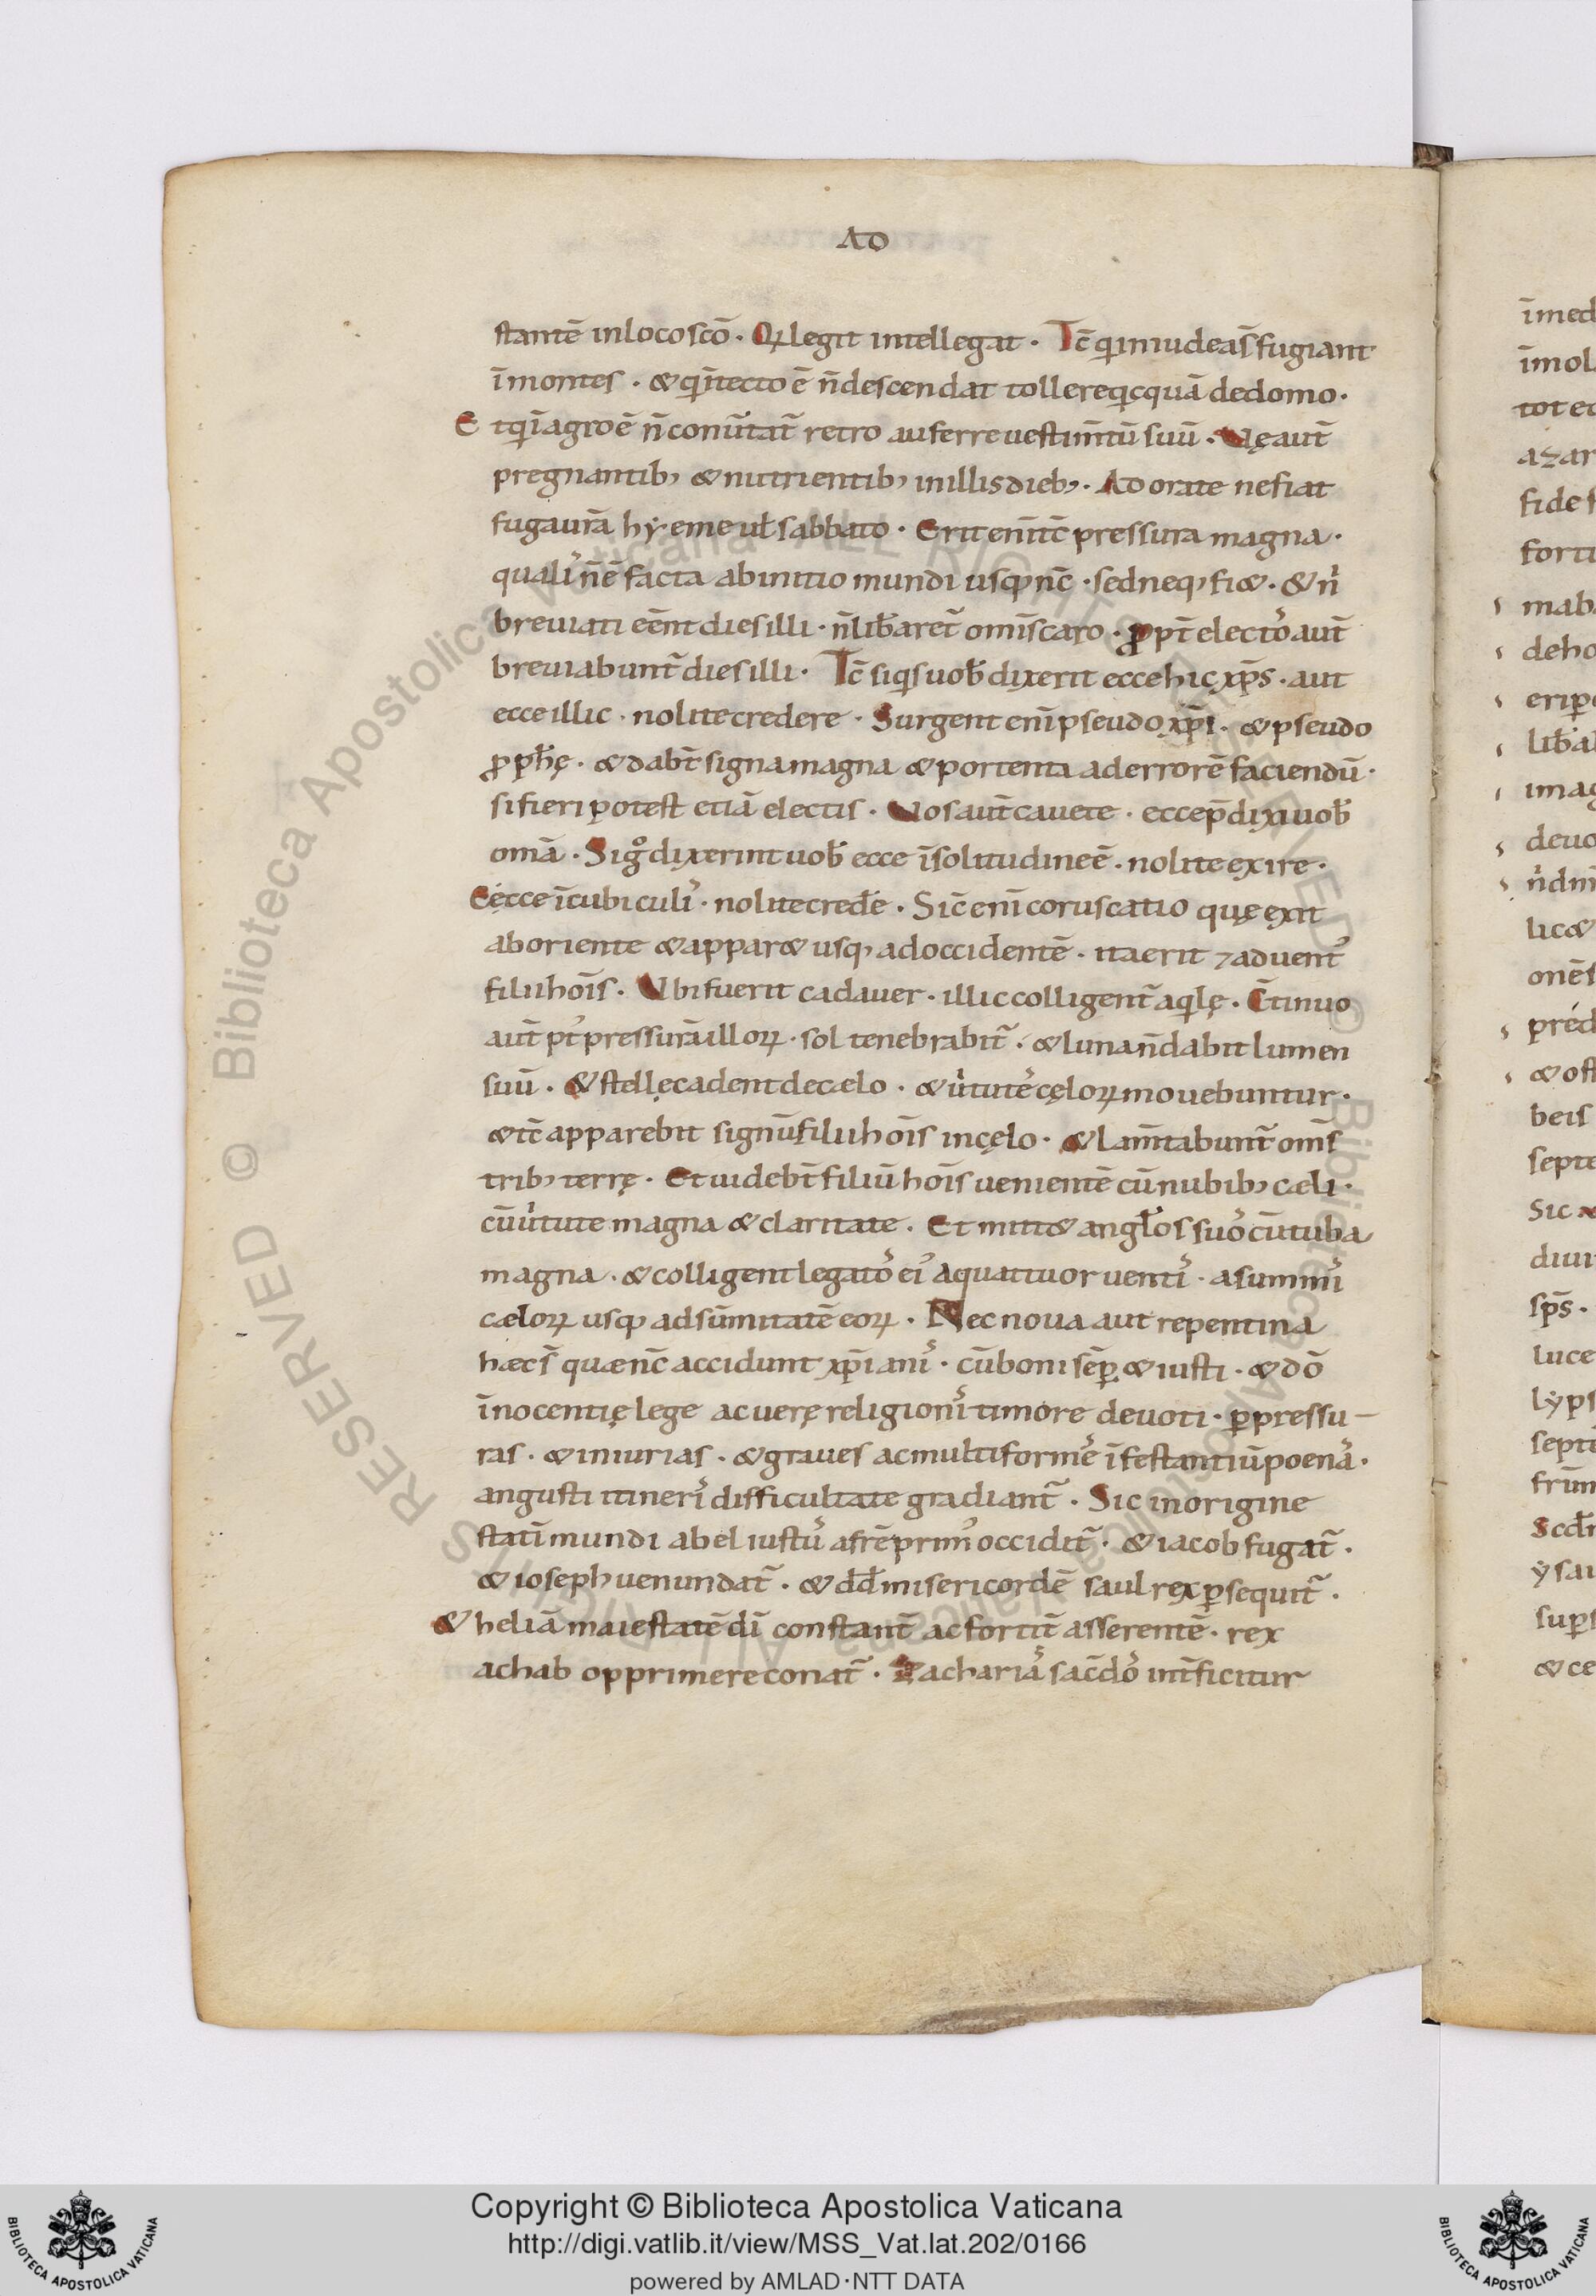 AD
stantē inloco scō · Qꝛ legit intellegat · Tc̄ qui iniudeas̄ fugiant
īmontes · & qui ītecto ē n̄descendat tollere qicquā dedomo ·
Et qi īagro ē n̄ conuītat̄ retro auferre uestim̄tū suū · Uę aut̄
pregnantib; & nutrientib; inillis dieb; · Ad orate nefiat
fuga ur̄a hẏeme ul̄ sabbato · Erit eni tc̄ pressura magna ·
quali᾽ n̄ē facta abinitio mundi usq; nc̄ · sed neq; fi& · & n᾽
breuiati eēnt dies illi · n̄lib̄aret̄ omīs caro · ꝓpt̄ electo᾽ aut̄
breuiabunt̄ dies illi · Tc̄ siq̣s uob̄ dixerit ecce hic xp̄s · aut
ecce illic · nolite credere · Surgent enī pseudo xp̄i · & pseudo
ꝓph̄ę · & dabt̄ signa magna & portenta ad errorē faciendū ·
si fieri potest etiā electis · Uos aut̄ cauete · ecce p̄dixi uob̄
omā · Si gͦ dixerint uob̄ ecce īsolitudine ē · nolite exire ·
Eecce īcubiculi᾽ · nolite cred̄e · Sic̄ enī coruscatio quę exit
aboriente & appar& usq; adoccidentē · ita erit ⁊aduent᾽
filii hōis · Ubi fuerit cadauer · illic colligent̄ aqilę · C̄tinuo
aut̄ p᾽t pressurā illoꝝ · sol tenebrabit̄ · & luna n̄dabit lumen
suū · & stellę cadent decælo · & u᾽tute᾽ cęloꝝ mouebuntur ·
& tc̄ apparebit signū filii hōis incęlo · & lam̄tabunt̄ oms̄
trib; terrę · Et uidebt̄ filiū hōis uenientē cū nubib; cæli ·
cū u᾽tute magna & claritate · Et mitt& angl̄os suo᾽ cū tuba
magna · & colligent legato᾽ ei᾽ aquattuor uenti᾽ · asummi᾽
cæloꝝ usq; adsūmitatē eoꝝ · Nec noua aut repentina
hæc s̄ quæ nc̄ accidunt xp̄iani᾽ · cū boni sēp & iusti · & dō
īnocentię lege ac uerę religioni᾽ timore deuoti · ꝑ pressu-
ras · & iniurias · & graues ac multiforme᾽ īfestantiū poena᾽ ·
angusti itineri᾽ difficultate gradiant̄ · Sic inorigine
statī mundi abel iustu᾽ afrē prim᾽ occidit̄ · & iacob fugat̄ ·
& ioseph uenundat̄ · & dd̄ misericordē saul rex ꝑsequit̄ ·
& heliā maiestatē dī constant̄ ac fortit̄ asserentē · rex
achab opprimere conat̄ · Zacharia᾽ sac̄do᾽ int̄ficitur
īmed
īmol
tot ec
azar
fide s
fortι
mab
deho
erip
lib̄al
imag
deuo
n᾽dnī
lic&
onēs
préd
& ost
beis
septe
Sic
diui
sp̄s ·
luce
lẏps
septι
frūm
Scdm
ẏsaι
sups
& ce
Copyright © Biblioteca Apostolica Vaticana
http://digi.vatlib.it/view/MSS_Vat.lat.202/0166
powered by AMLAD·NTT DATA
BIBLIOTECA APOSTOLICA VATICANA
BIBLIOTECA APOSTOLICA VATICANA
© Biblioteca Apostolica Vaticana ALL RIGHTS RESERVED
© Biblioteca Apostolica Vaticana ALL RIGHTS RESERVED